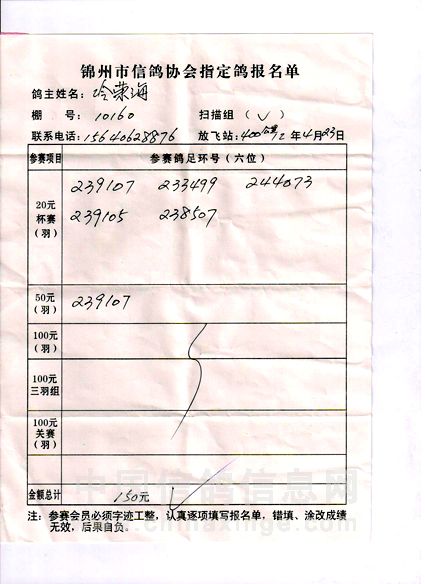 锦州市信鸽协会指定鸽报名单
鸽主姓名：冷荣海
棚 号：10160 扫描组（√）
联系电话：15640628876 放飞站：400公里 2年4月23日
参赛项目 参赛鸽足环号（六位）
20元杯赛（羽） 239107 233499 244073
239105 238507
50元（羽） 239107
100元（羽）
100元三羽组
100元关赛（羽）
金额总计 150元
注：参赛会员必须字迹工整，认真逐项填写报名单，错填、涂改成绩
无效，后果自负。
中国信鸽信息网
www.chinaxinge.com